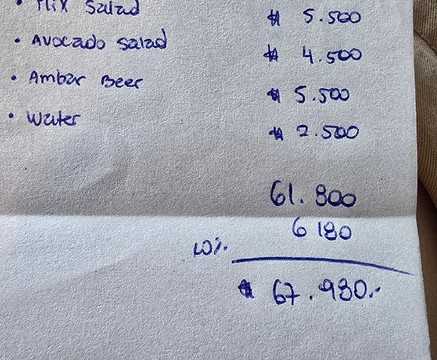 • Mix Salad $ 5.500
• Avocado salad $ 4.500
• Ambar Beer $ 5.500
• Water $ 2.500
61.800
10%. 6180
$ 67.980.-